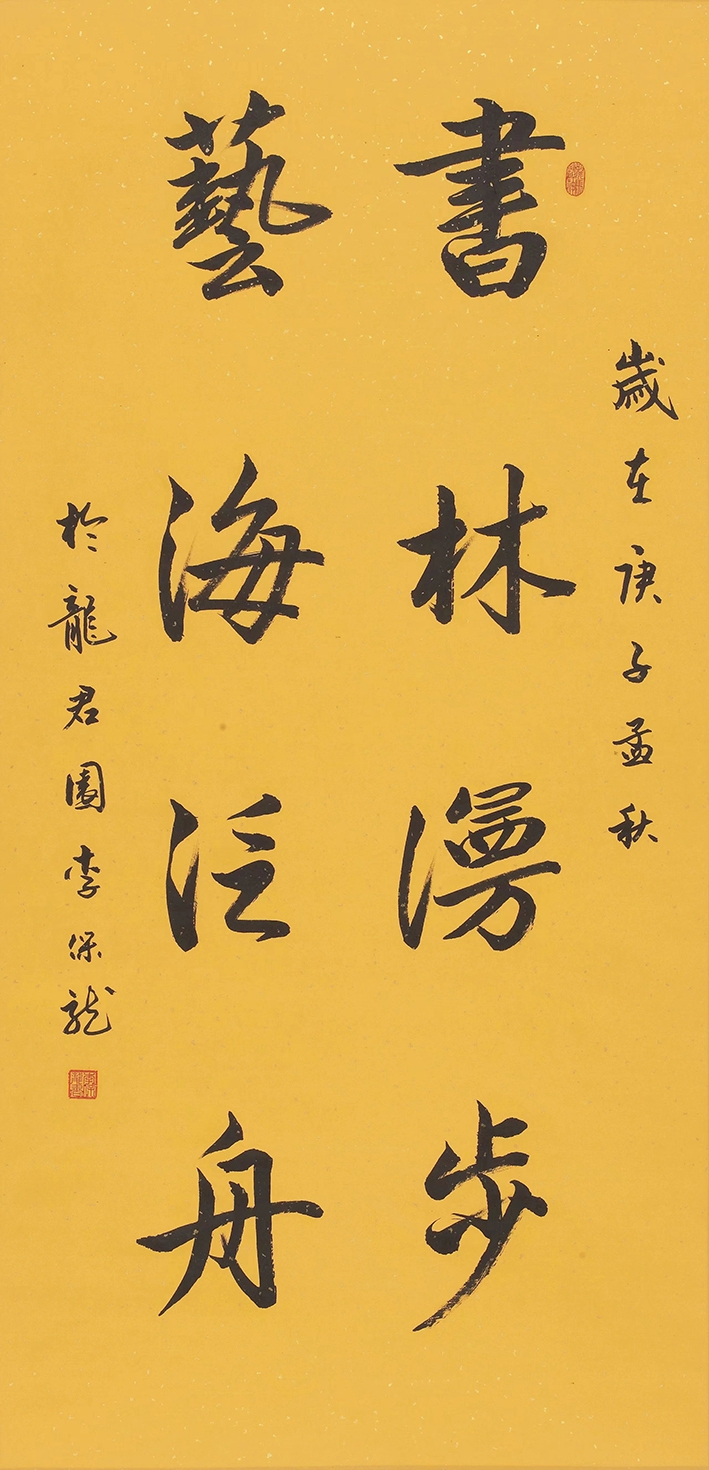 歲在庚子孟秋
書林漫步
藝海泛舟
於龍君園李保龍